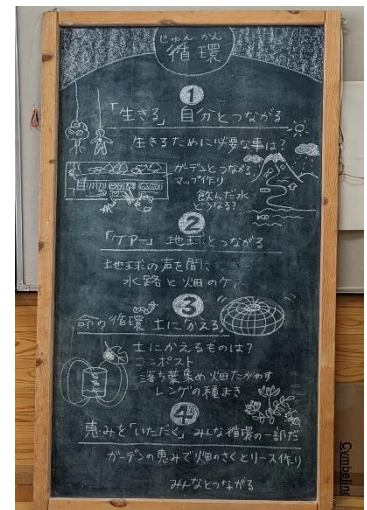 じゅん かん
循環
1
「生きる」 自分とつながる
生きるために必要な事は?
ガーデンとつながる
マップ作り
飲んだ水
どうなる?
2
「ケアー」 地球とつながる
地球の声を聞く
水路と畑のケアー
3
命の循環 土にかえる
土にかえるものは?
コンポスト
落ち葉集め 畑たがやす
レンゲの種まき
4
恵みを「いただく」 みんな循環の一部だ
ガーデンの恵みで畑のさくとリース作り
みんなとつながる
Cymbeline